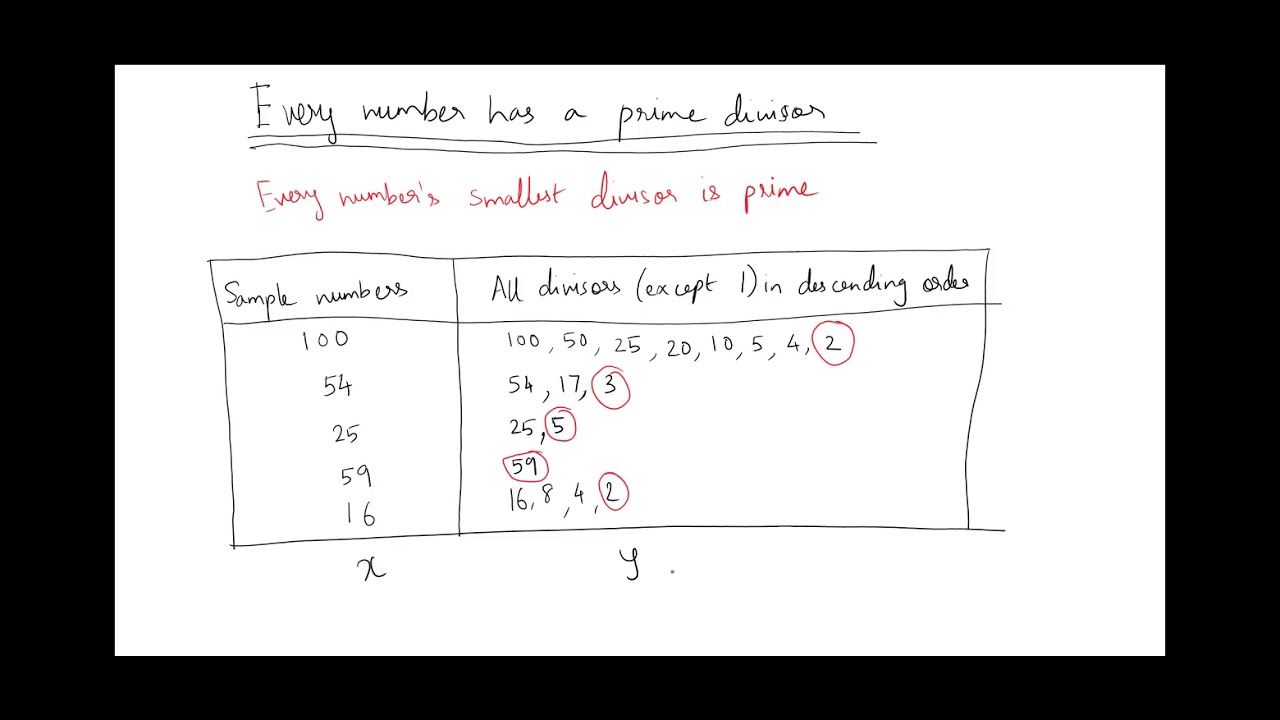 Every number has a prime divisor
Every number's smallest divisor is prime
Sample numbers All divisors (except 1) in descending order
100 100, 50, 25, 20, 10, 5, 4, 2
54 54, 17, 3
25 25, 5
59 59
16 16, 8, 4, 2
x y